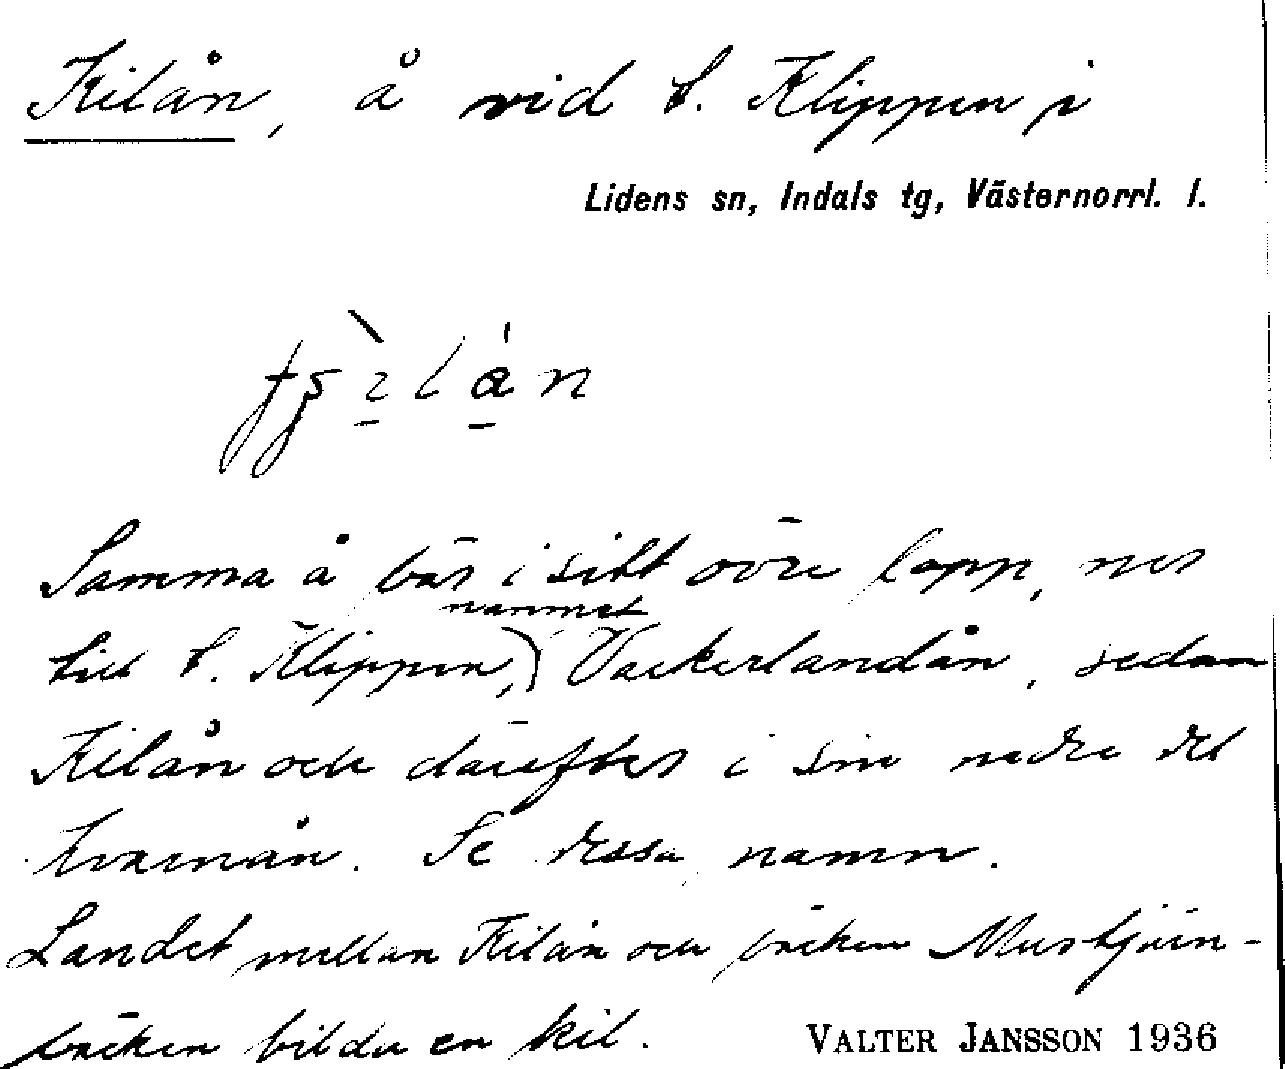 Kilån, å vid t. Klippen i
Lidens sn, Indals tg, Västernorrl. l.
Samma å bär i sitt övre lopp, ner
till t. Klippen, namnet Vackerlandån, sedan
Kilån och därefter i sin nedre del
Kvarnån. Se dessa namn.
Landet mellan Kilån och bäcken Murtjärn-
bäcken bildar en kil.
VALTER JANSSON 1936